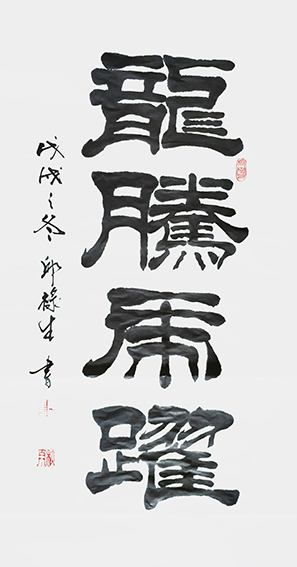 龍騰虎躍
戊戌之冬 邱祿生 書